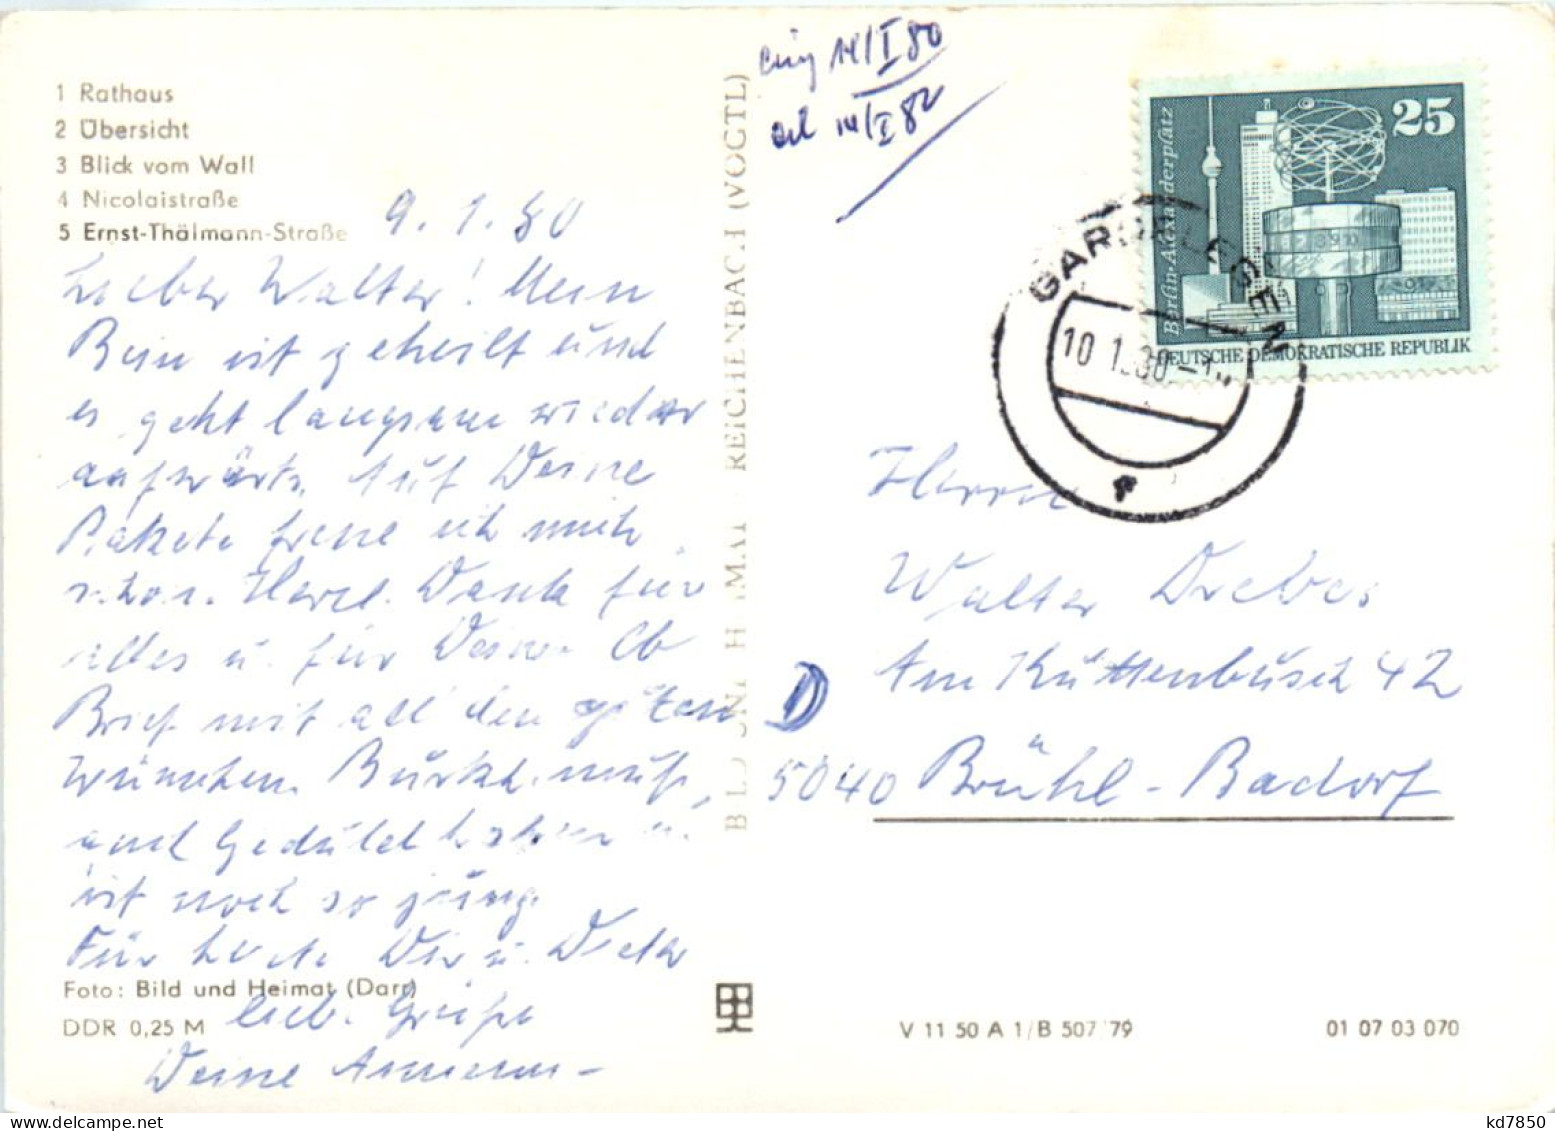 1 Rathaus
2 Übersicht
3 Blick vom Wall
4 Nicolaistraße
5 Ernst-Thälmann-Straße
9.1.80
Lieber Walter! Mein
Bein ist geheilt und
es geht langsam wieder
aufwärts. Auf Deine
Pakete freue ich mich
schon. Herzl. Dank für
alles u. für Deinen
Brief mit all den guten
Wünschen. Burkh. muß
auch Geduld haben u.
ist noch so jung.
Für heute Dir u. Dieter
Foto: Bild und Heimat (Darr)
DDR 0,25 M
lieb. Grüße
Deine
BILD UND HEIMAT REICHENBACH (VOGTL)
eing 14/I 80
14/I 82
25
Berlin-Alexanderplatz
DEUTSCHE DEMOKRATISCHE REPUBLIK
GARDELEGEN
10.1.80
Herrn
Walter Drebes
Am Kuttenbusch 42
D
5040 Brühl-Badorf
V 11 50 A 1/B 507/79
01 07 03 070
kd7850